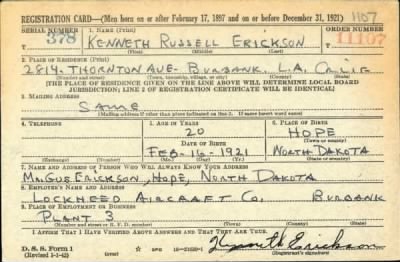 REGISTRATION CARD—(Men born on or after February 17, 1897 and on or before December 31, 1921) 1107
SERIAL NUMBER 1. NAME (Print) ORDER NUMBER
378 KENNETH RUSSELL ERICKSON 11107
(First) (Middle) (Last)
2. PLACE OF RESIDENCE (Print)
2814 THORNTON AVE BURBANK, L.A. CALIF
(Number and street) (Town, township, village, or city) (County) (State)
[THE PLACE OF RESIDENCE GIVEN ON THE LINE ABOVE WILL DETERMINE LOCAL BOARD
JURISDICTION; LINE 2 OF REGISTRATION CERTIFICATE WILL BE IDENTICAL]
3. MAILING ADDRESS
SAME
[Mailing address if other than place indicated on line 2. If same insert word same]
4. TELEPHONE 5. AGE IN YEARS 6. PLACE OF BIRTH
20 HOPE
DATE OF BIRTH (Town or county)
FEB-16-1921 NORTH DAKOTA
(Exchange) (Number) (Mo.) (Day) (Yr.) (State or country)
7. NAME AND ADDRESS OF PERSON WHO WILL ALWAYS KNOW YOUR ADDRESS
MR. GUS ERICKSON, HOPE, NORTH DAKOTA
8. EMPLOYER'S NAME AND ADDRESS
LOCKHEED AIRCRAFT CO. BURBANK
9. PLACE OF EMPLOYMENT OR BUSINESS
PLANT 3
(Number and street or R. F. D. number) (Town) (County) (State)
I AFFIRM THAT I HAVE VERIFIED ABOVE ANSWERS AND THAT THEY ARE TRUE.
D. S. S. Form 1
(Revised 1-1-42) Kenneth Erickson
(Registrant's signature)